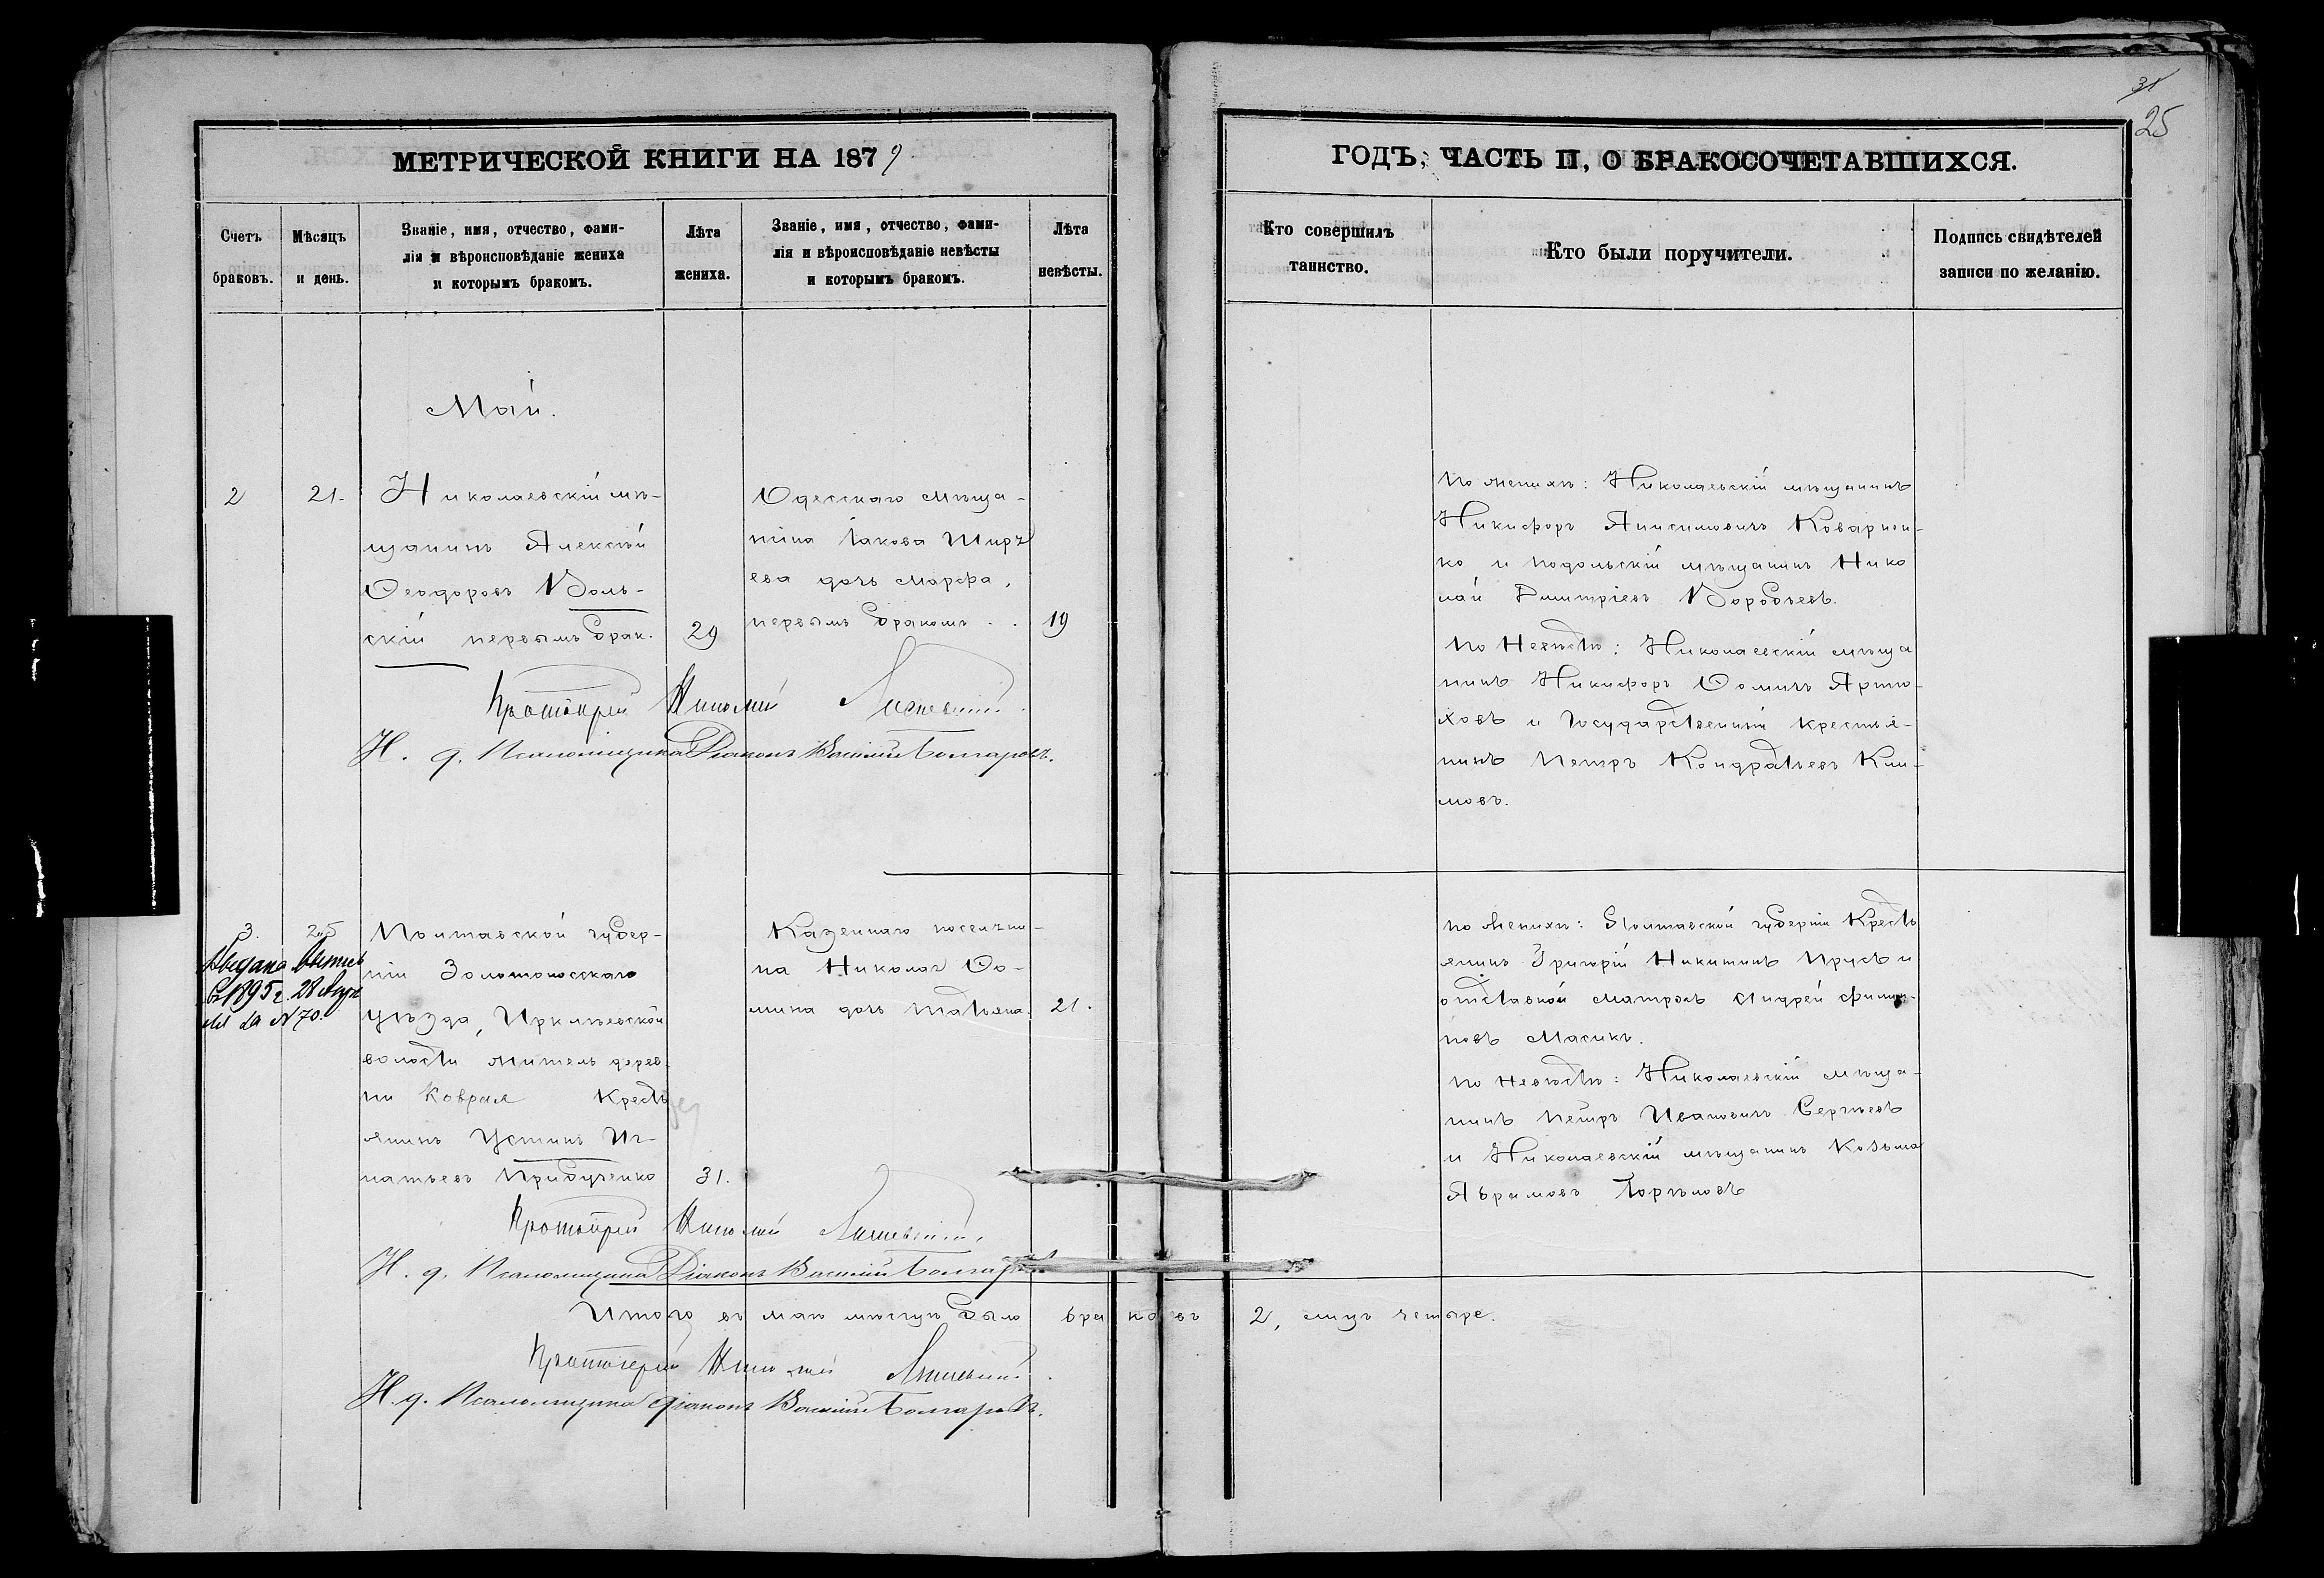 31
25
МЕТРИЧЕСКОЙ КНИГИ НА 1879
ГОДЪ, ЧАСТЬ II, О БРАКОСОЧЕТАВШИХСЯ.
Счетъ браковъ.
Мѣсяцъ и день.
Званіе, имя, отчество, фами-
лія и вѣроисповѣданіе жениха
и которымъ бракомъ.
Лѣта жениха.
Званіе, имя, отчество, фами-
лія и вѣроисповѣданіе невѣсты
и которымъ бракомъ.
Лѣта невѣсты.
Кто совершилъ
таинство.
Кто были поручители.
Подпись свидѣтелей
записи по желанію.
Май.
2
21.
Николаевскій мѣ-
щанинъ Алексѣй
Ѳеодоровъ Воль-
скій первымъ брак.
29
Одесскаго мѣща-
нина Іакова Ширя
ева дочь Марфа,
первымъ бракомъ . .
19
По женихѣ: Николаевскій мѣщанинъ
Никифоръ Анисимовичъ
ко и подольскій мѣщанинъ Нико
лай Дмитріевъ Воробьевъ.
По Невѣстѣ: Николаевскій мѣща
нинъ Никифоръ Ѳомичъ Артю-
ховъ и Государственный крестья-
нинъ Петръ Кондратьевъ Кли-
мовъ.
Протоіерей Николай
И. д. Псаломщика Діаконъ Василій Болгаровъ.
3.
25
Выдана выпись
въ 1895 г. 28
за N 70.
Полтавской губер-
ніи Золотоносскаго
уѣзда, Ирклѣевской
волости житель дерев
ни Коврая Кресть
янинъ Устинъ Иг-
натьевъ Придученко
31.
Казеннаго поселяни-
на Николая Ѳо-
мина дочь Татьяна.
21.
по Женихѣ: Полтавской губерніи Кресть
янинъ Григорій Никитинъ Прусъ и
отставной матросъ Андрей Филип-
повъ Масикъ.
по Невѣстѣ: Николаевскій мѣща-
нинъ Петръ Ивановичъ Сергѣевъ
и Николаевскій мѣщанинъ Козьма
Абрамовъ
Протоіерей Николай
И. д. Псаломщика Діаконъ Василій Болгаровъ
Итого въ маѣ мѣсяцѣ было браковъ 2, лицъ четыре.
Протоіерей Николай
И. д. Псаломщика Діаконъ Василій Болгаровъ.